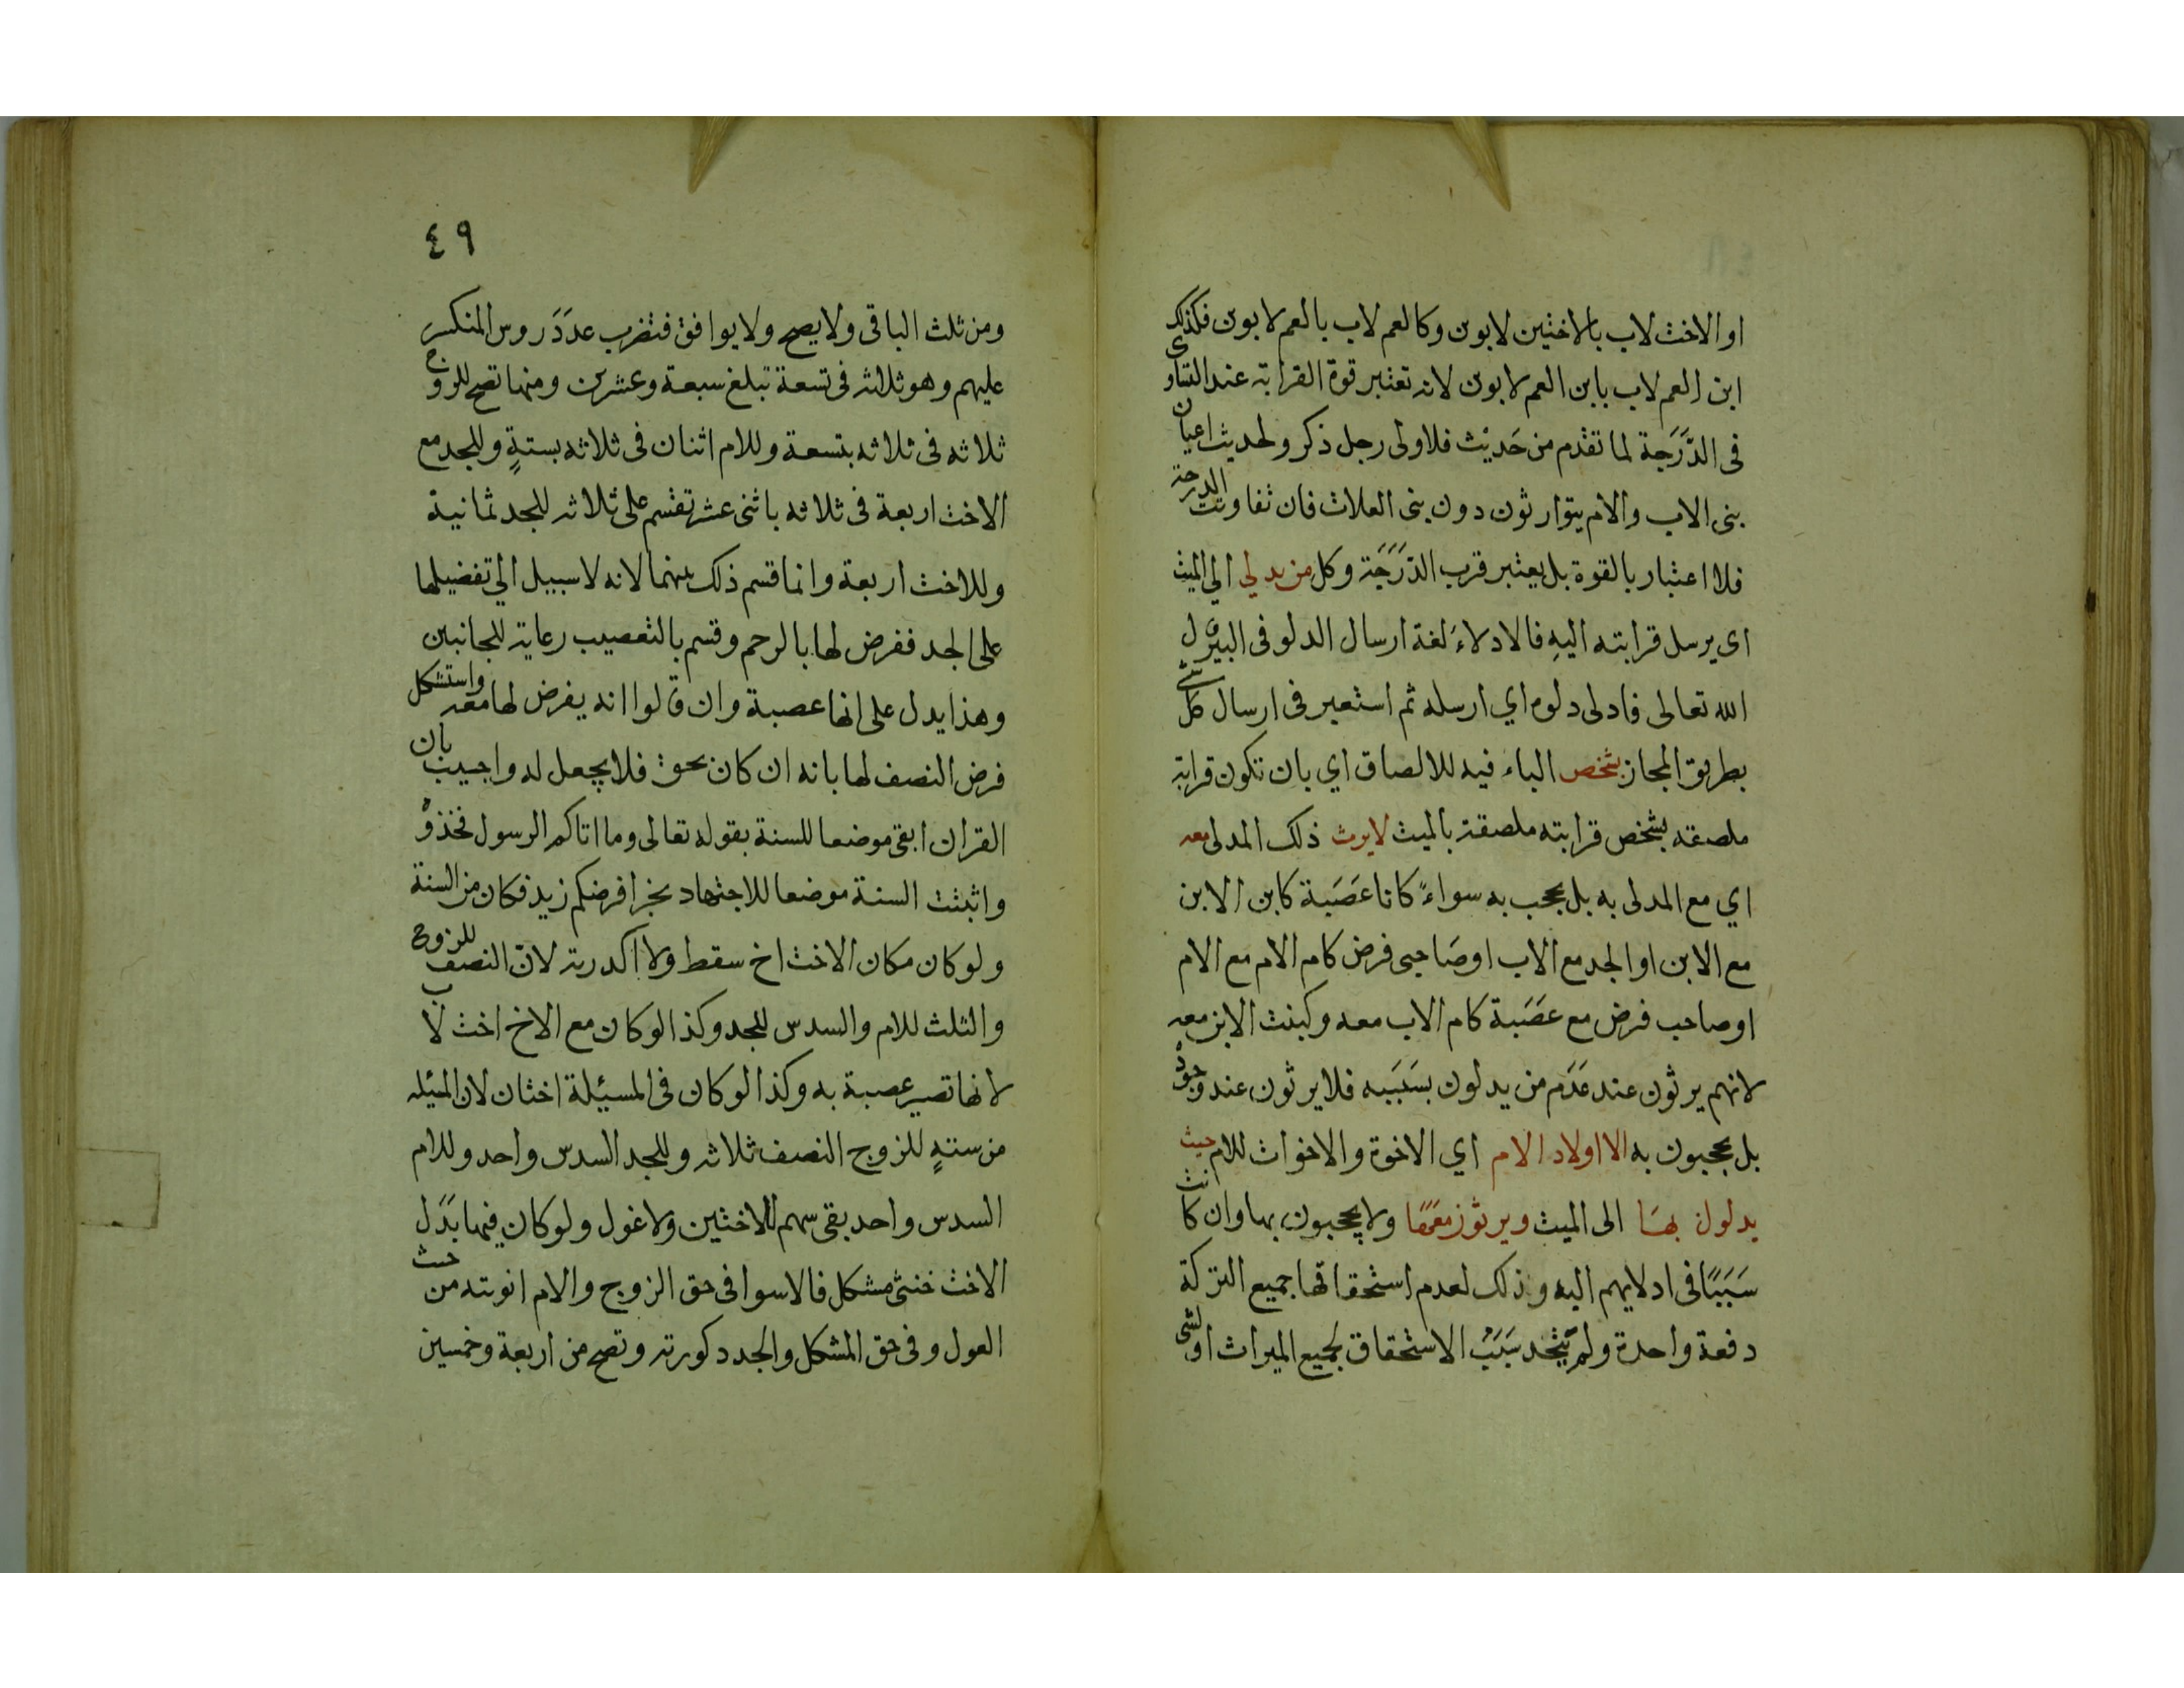 او الاخت لاب بالاختين لابوين وكالعم لاب بالعم لابوين فكذلك
ابن العم لاب بابن العم لابوين لانه تعتبر قوة القرابة عند التساوى
فى الدَّرَجَة لما تقدم من حَديث فلاولى رجل ذكر ولحديث اعيان
بنى الاب والام يتوارثون دون بنى العلات فان تفاوتت الدرجة
فلا اعتبار بالقوة بل يعتبر قرب الدَّرَجَة وكل من يدلي الي الميت
اى يرسل قرابته اليهِ فالادلاءَ لغة ارسال الدلو فى البير قال
الله تعالى فادلى دلوه اي ارسله ثم استعير فى ارسال كل شئ
بطريق المجاز بشخص الباء فيه للالصاق اي بان تكون قرابته
ملصقه بشخص قرابته ملصقة بالميت لايرث ذلك المدلى معه
اي مع المدلى به بل يحجب به سواءً كانا عَصَبة كابن الابن
مع الابن او الجد مع الاب او صَاحبى فرض كام الام مع الام
او صاحب فرض مع عصَبة كام الاب معه وكبنت الابن معه
لانهم يرثون عند عَدَم من يدلون بسَبَبه فلا يرثون عند وجوده
بل يحجبون به الا اولاد الام اي الاخوة والاخوات للام حيث
يدلون بهَا الى الميت ويرثون معهَا ولا يحجبون بها وان كانت
سَبَبًا فى ادلايهم اليه وذلك لعدم استحقاقها جميع التركة
دفعة واحدة ولم يتّحد سَبَبُ الاستحقاق لجميع الميراث او لشى
٤٩
ومن ثلث الباقى ولا يصح ولا يوافق فتضرب عدَدَ روس المنكسر
عليهم وهو ثلاثه فى تسعة تبلغ سبعة وعشرين ومنها تصح للزوج
ثلاثه فى ثلاثه بتسعة وللام اثنان فى ثلاثه بستةٍ وللجد مع
الاخت اربعة فى ثلاثه باثنى عشر تقسم على ثلاثه للجد ثمانية
وللاخت اربعة وانما قسم ذلك بينهما لانه لا سبيل الي تفضيلها
على الجد ففرض لها بالرحم وقسم بالتعصيب رعاية للجانبين
وهذا يدل على انها عصبة وان قالوا انه يفرض لها معه واستشكل
فرض النصف لها بانه ان كان بحق فلا يجعل له واجيب بان
القران ابقى موضعا للسنة بقوله تعالى وما اتاكم الرسول فخذوه
واثبتت السنة موضعا للاجتهاد بخبر افرضكم زيد فكان من السنة
ولو كان مكان الاخت اخ سقط ولا اكدرية لان النصف للزوج
والثلث للام والسدس للجد وكذا لو كان مع الاخ اخت لاب
لانها تصير عصبة به وكذا لو كان فى المسئلة اختان لان المسٔيله
من ستةٍ للزوج النصف ثلاثه وللجد السدس واحد وللام
السدس واحد بقى سهم للاختين ولا عول ولو كان فيها بَدَل
الاخت خنثى مشكل فالاسوا فى حق الزوج والام انوثته من حيث
العول وفى حق المشكل والجد ذكورته وتصح من اربعة وخمسين